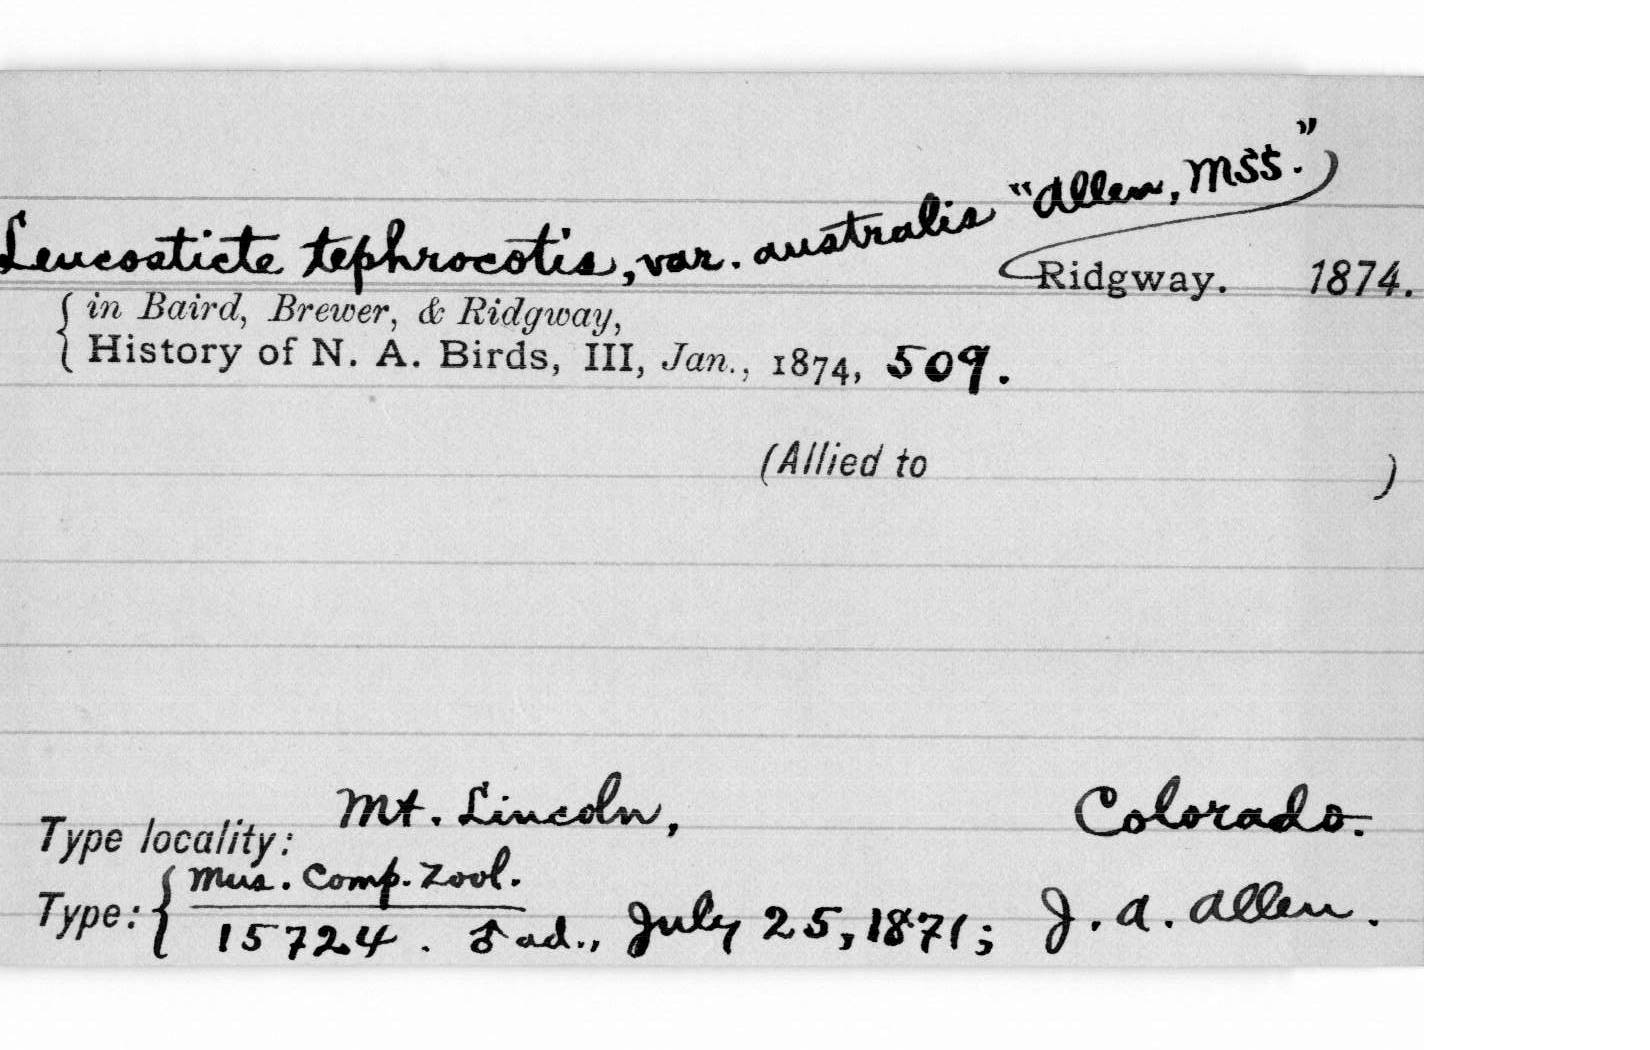 Leucosticte tephrocotis, var. australis "Allen, MSS.")
Ridgway. 1874.
in Baird, Brewer, & Ridgway,
History of N. A. Birds, III, Jan., 1874, 509.
(Allied to )
Type locality: Mt. Lincoln, Colorado.
Mus. Comp. Zool.
Type: 15724. ♂ ad., July 25, 1871; J. A. Allen.